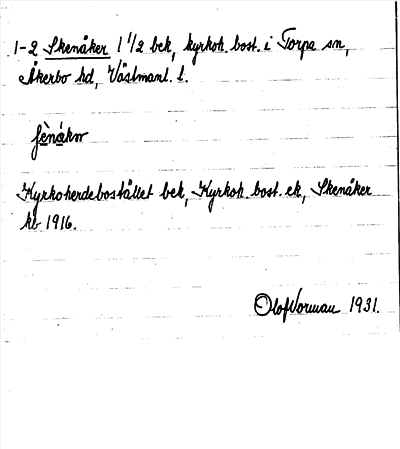 1-2 Skenåker 1 1/2 bek, kyrkoh. bost. i Torpa sn,
Åkerbo hd, Västmanl. l.
Kyrkoherdebostället bek, Kyrkoh. bost. ek, Skenåker
kb 1916.
Olof Norman 1931.